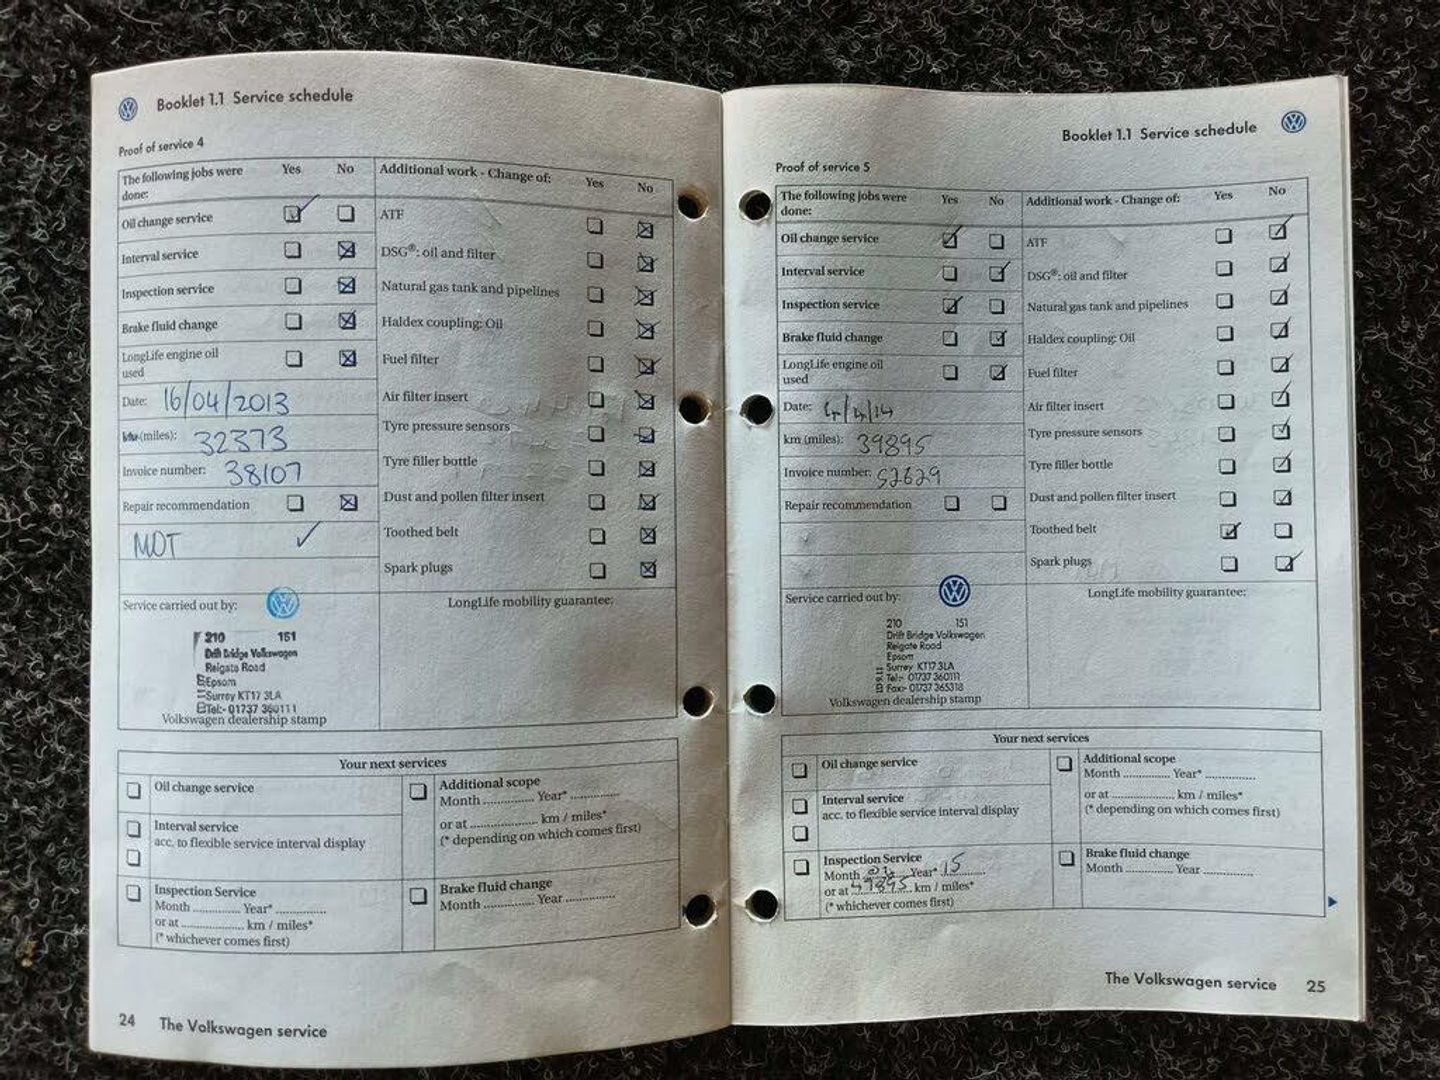 Booklet 1.1 Service schedule
Proof of service 4
The following jobs were done: Yes No
Oil change service
Interval service
Inspection service
Brake fluid change
LongLife engine oil used
Date: 16/04/2013
(miles): 32373
Invoice number: 38107
Repair recommendation
MOT ✓
Service carried out by:
210 151
Drift Bridge Volkswagen
Reigate Road
Epsom
Surrey KT17 3LA
Tel:- 01737 360111
Volkswagen dealership stamp
Additional work - Change of: Yes No
ATF
DSG®: oil and filter
Natural gas tank and pipelines
Haldex coupling: Oil
Fuel filter
Air filter insert
Tyre pressure sensors
Tyre filler bottle
Dust and pollen filter insert
Toothed belt
Spark plugs
LongLife mobility guarantee:
Your next services
Oil change service
Interval service
acc. to flexible service interval display
Inspection Service
Month .............. Year* ..............
or at .................... km / miles*
(* whichever comes first)
Additional scope
Month .............. Year* ..............
or at .................... km / miles*
(* depending on which comes first)
Brake fluid change
Month .............. Year ..............
24 The Volkswagen service
Booklet 1.1 Service schedule
Proof of service 5
The following jobs were done: Yes No
Oil change service
Interval service
Inspection service
Brake fluid change
LongLife engine oil used
Date: /4/14
km (miles): 39895
Invoice number: 52629
Repair recommendation
Service carried out by:
210 151
Drift Bridge Volkswagen
Reigate Road
Epsom
Surrey KT17 3LA
Tel:- 01737 360111
Fax:- 01737 365318
Volkswagen dealership stamp
Additional work - Change of: Yes No
ATF
DSG®: oil and filter
Natural gas tank and pipelines
Haldex coupling: Oil
Fuel filter
Air filter insert
Tyre pressure sensors
Tyre filler bottle
Dust and pollen filter insert
Toothed belt
Spark plugs
LongLife mobility guarantee:
Your next services
Oil change service
Interval service
acc. to flexible service interval display
Inspection Service
Month Year* 15
or at 49895 km / miles*
(* whichever comes first)
Additional scope
Month .............. Year* ..............
or at .................... km / miles*
(* depending on which comes first)
Brake fluid change
Month .............. Year ..............
The Volkswagen service 25